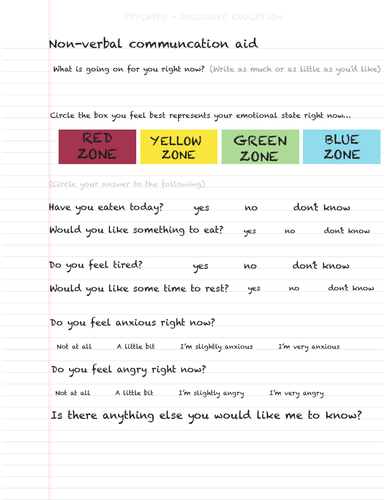 PSYCHSPO - INCLUSIVE EDUCATION
Non-verbal communcation aid
What is going on for you right now? (Write as much or as little as you'd like)
Circle the box you feel best represents your emotional state right now...
RED ZONE YELLOW ZONE GREEN ZONE BLUE ZONE
(Circle your answer to the following)
Have you eaten today? yes no don't know
Would you like something to eat? yes no don't know
Do you feel tired? yes no don't know
Would you like some time to rest? yes no don't know
Do you feel anxious right now?
Not at all A little bit I'm slightly anxious I'm very anxious
Do you feel angry right now?
Not at all A little bit I'm slightly angry I'm very angry
Is there anything else you would like me to know?